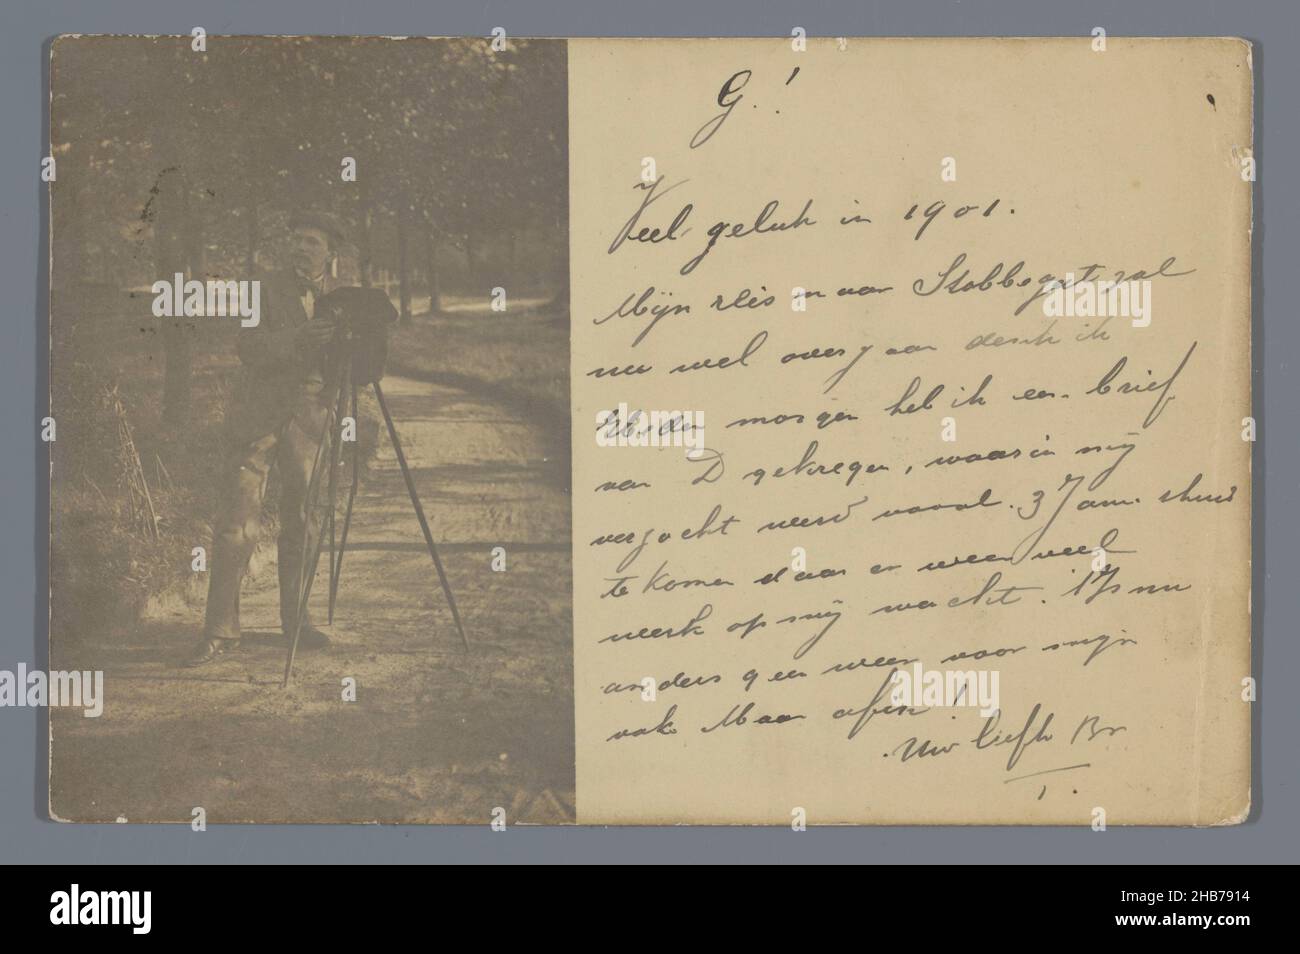 G.!
Veel geluk in 1901.
Mijn reis naar Stobbegat zal
nu wel overgaan denk ik
Heden morgen heb ik een brief
van D gekregen, waarin mij
verzocht werd vooral 3 Jan. thuis
te komen daar er weer veel
werk op mij wacht. 't Is nu
anders geen weer voor mijn
vak Maar afin!
Uw liefh Br
T.
alamy
Image ID: 2HB7914
www.alamy.com